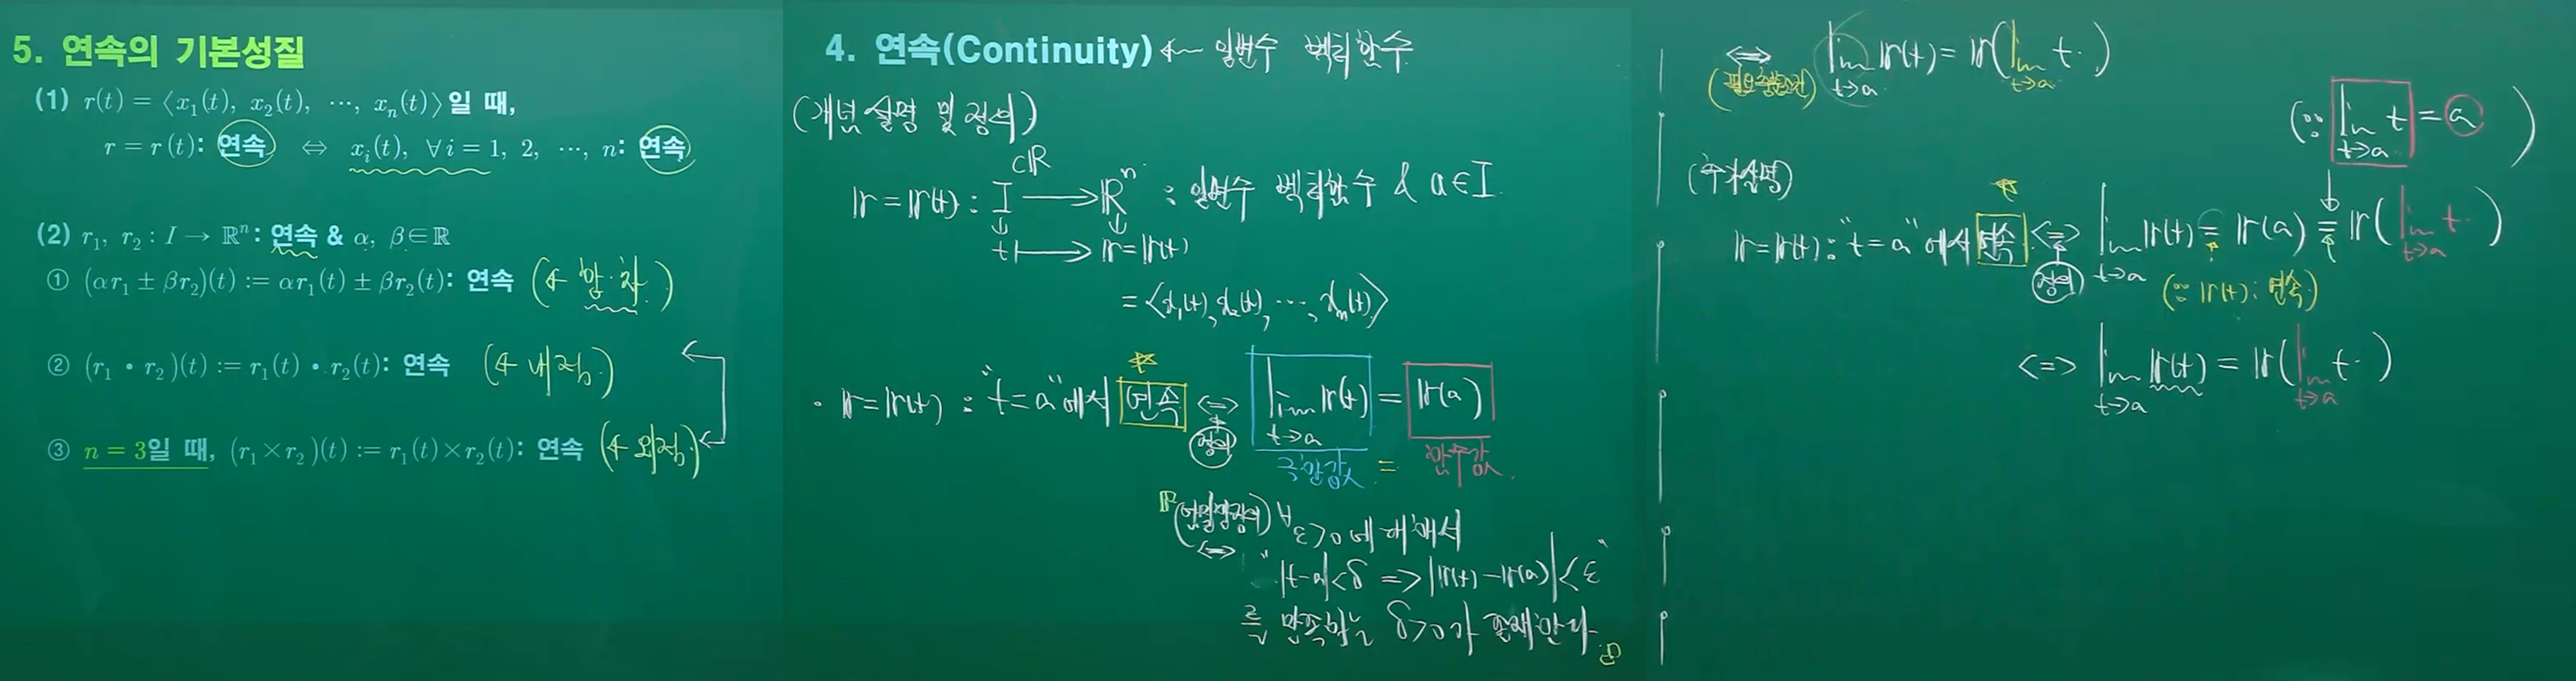 5. 연속의 기본성질
(1) r(t) = ⟨x₁(t), x₂(t), ⋯, xₙ(t)⟩일 때,
r = r(t): 연속 ⇔ xᵢ(t), ∀i = 1, 2, ⋯, n: 연속
(2) r₁, r₂ : I → ℝⁿ: 연속 & α, β∈ℝ
① (αr₁ ± βr₂)(t) := αr₁(t) ± βr₂(t): 연속 (← 합·차)
② (r₁ • r₂)(t) := r₁(t) • r₂(t): 연속 (← 내적)
③ n = 3일 때, (r₁×r₂)(t) := r₁(t)×r₂(t): 연속 (← 외적)
4. 연속(Continuity) ← 일변수 벡터함수
(개념 설명 및 정의)
⊂ℝ
𝕣 = 𝕣(t) : I ⟶ ℝⁿ : 일변수 벡터함수 & a∈I
t ⟼ 𝕣=𝕣(t)
= ⟨x₁(t), x₂(t), ⋯, xₙ(t)⟩
• 𝕣=𝕣(t) : "t=a"에서 연속 ⇔ lim 𝕣(t) = 𝕣(a)
정의 t→a
극한값 = 함수값
(엄밀한정의) ∀ε>0에 대해서
⇔ "|t-a|<δ => |𝕣(t)-𝕣(a)|<ε"
를 만족하는 δ>0가 존재한다.
⇔ lim 𝕣(t) = 𝕣(lim t)
(필요충분조건) t→a t→a
(∵ lim t = a)
t→a
(추가설명)
𝕣=𝕣(t) : "t=a"에서 연속 ⇔ lim 𝕣(t) = 𝕣(a) = 𝕣(lim t)
정의 t→a t→a
(∵ 𝕣(t): 연속)
⇔ lim 𝕣(t) = 𝕣(lim t)
t→a t→a